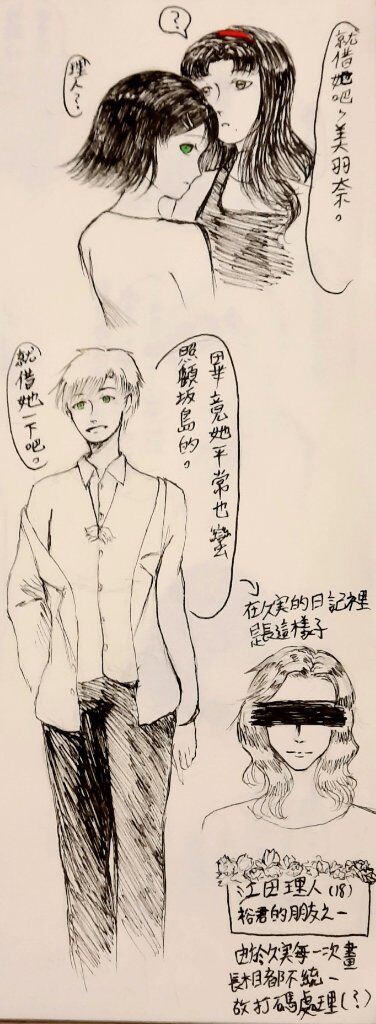 ?
就借她吧，美羽奈。
理人？
畢竟她平常也蠻
照顧坂島的。
就借她一下吧。
在久実的日記裡
是長這樣子
江田理人(18)
裕君的朋友之一
由於久実每一次畫
長相都不統一
故打碼處理(?)